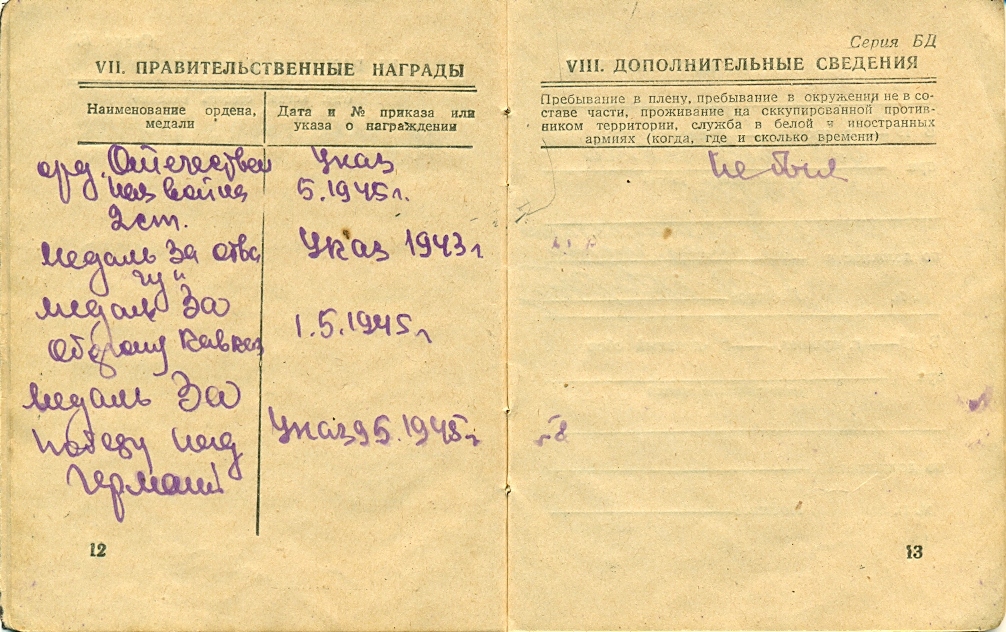 VII. ПРАВИТЕЛЬСТВЕННЫЕ НАГРАДЫ
Наименование ордена, медали
Дата и № приказа или указа о награждении
орд. Отечествен
ная война
2 ст.
Указ
5.1945 г.
медаль За отва
гу"
Указ 1943 г
медаль За
оборону Кавказ
1.5.1945 г
медаль За
победу над
Герман
Указ 9 5.1945 г
12
Серия БД
VIII. ДОПОЛНИТЕЛЬНЫЕ СВЕДЕНИЯ
Пребывание в плену, пребывание в окружении не в со-
ставе части, проживание на оккупированной против-
ником территории, служба в белой и иностранных
армиях (когда, где и сколько времени)
Не был
13